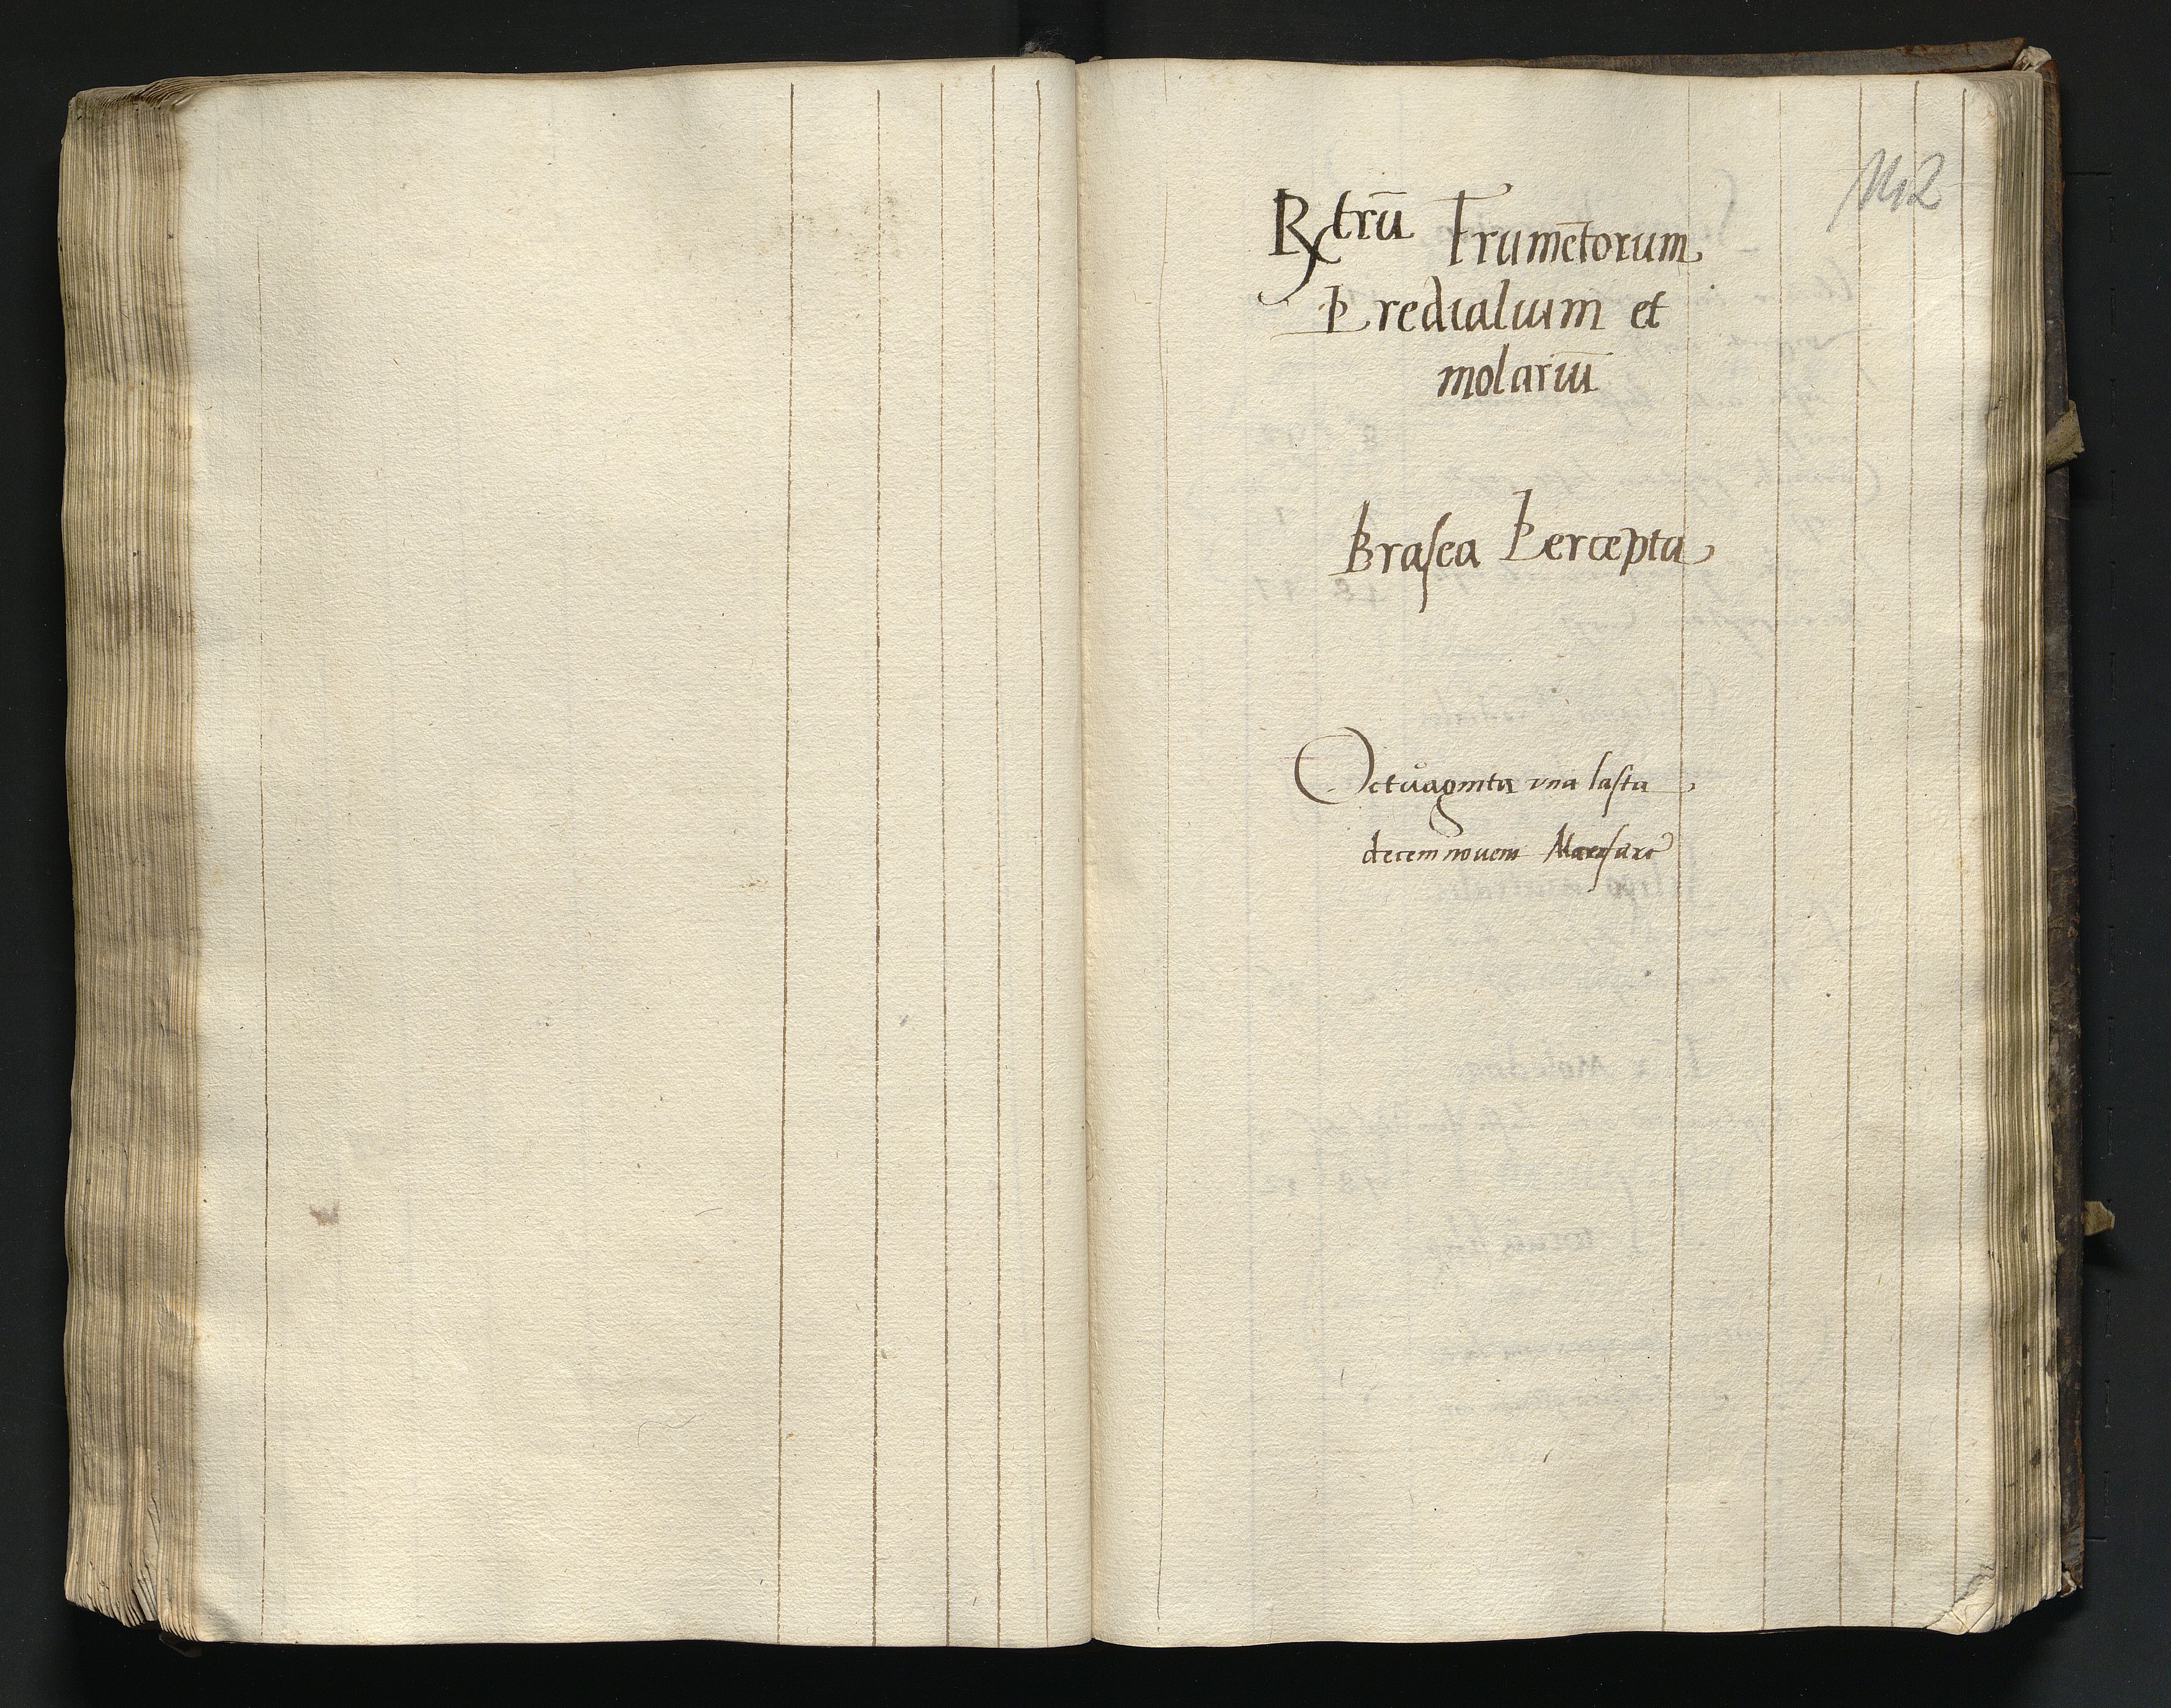 112
Rᶜtrū Frumētorum
Predialium et
molariū
Brasea Percepta
Octuaginta vna lasta
decem novem